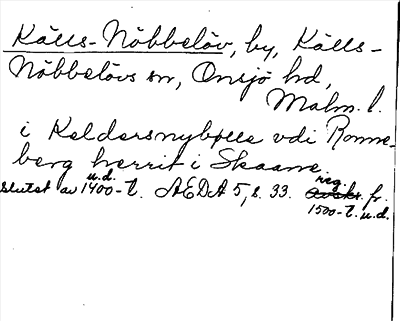 Källs-Nöbbelöv, by, Källs-
Nöbbelövs sn, Onsjö hd,
Malm. l.
i Keldersnybplle vdi Romme-
berg herrit i Skaane
u.d. reg.
slutet av 1400-t. AEDA 5, s. 33. Avskr. fr.
1500-t. u.d.